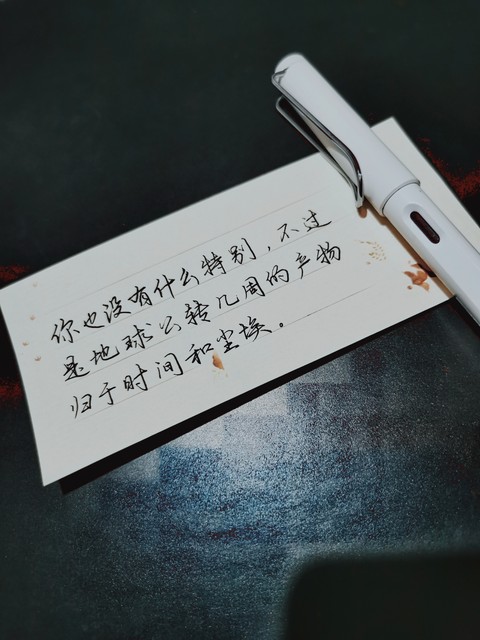 你也没有什么特别，不过
是地球公转几周的产物
归于时间和尘埃。